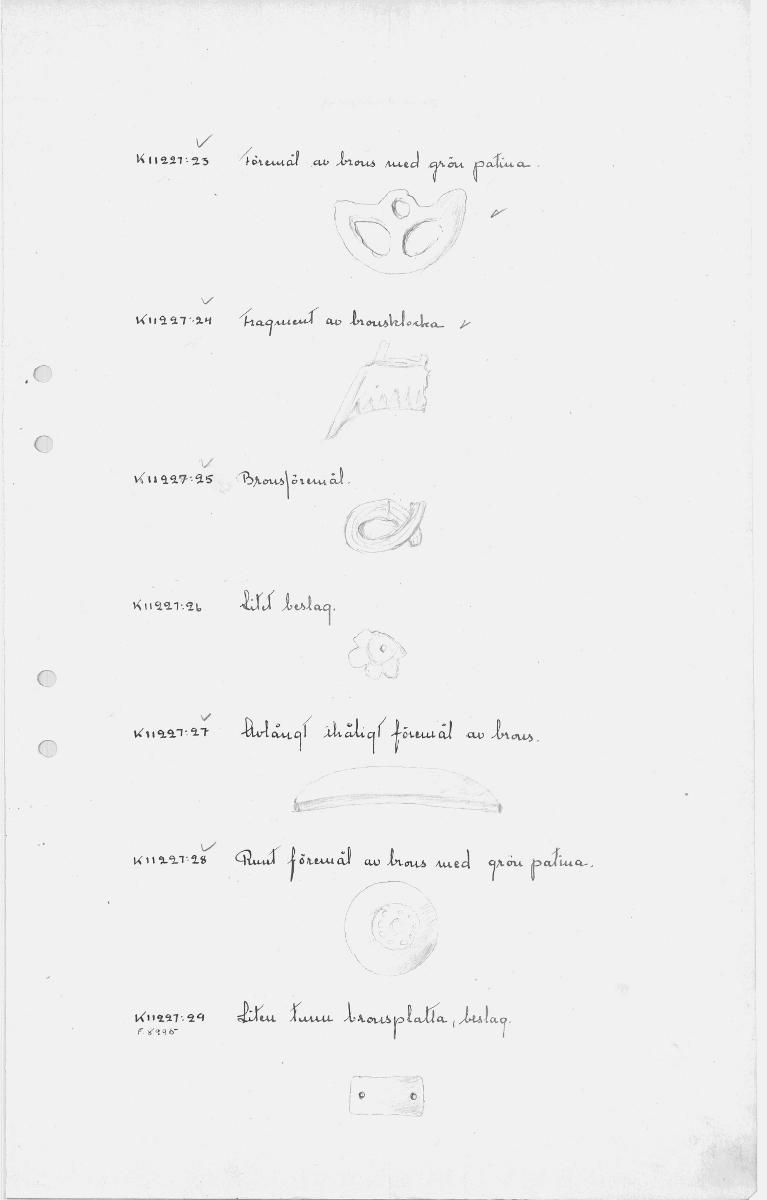 K11227:23 Föremål av brons med grön patina.
K11227:24 Fragment av bronsklocka
K11227:25 Bronsföremål.
K11227:26 Litet beslag.
K11227:27 Avlångt ihåligt föremål av brons.
K11227:28 Runt föremål av brons med grön patina.
K11227:29 Liten tunn bronsplatta, beslag.